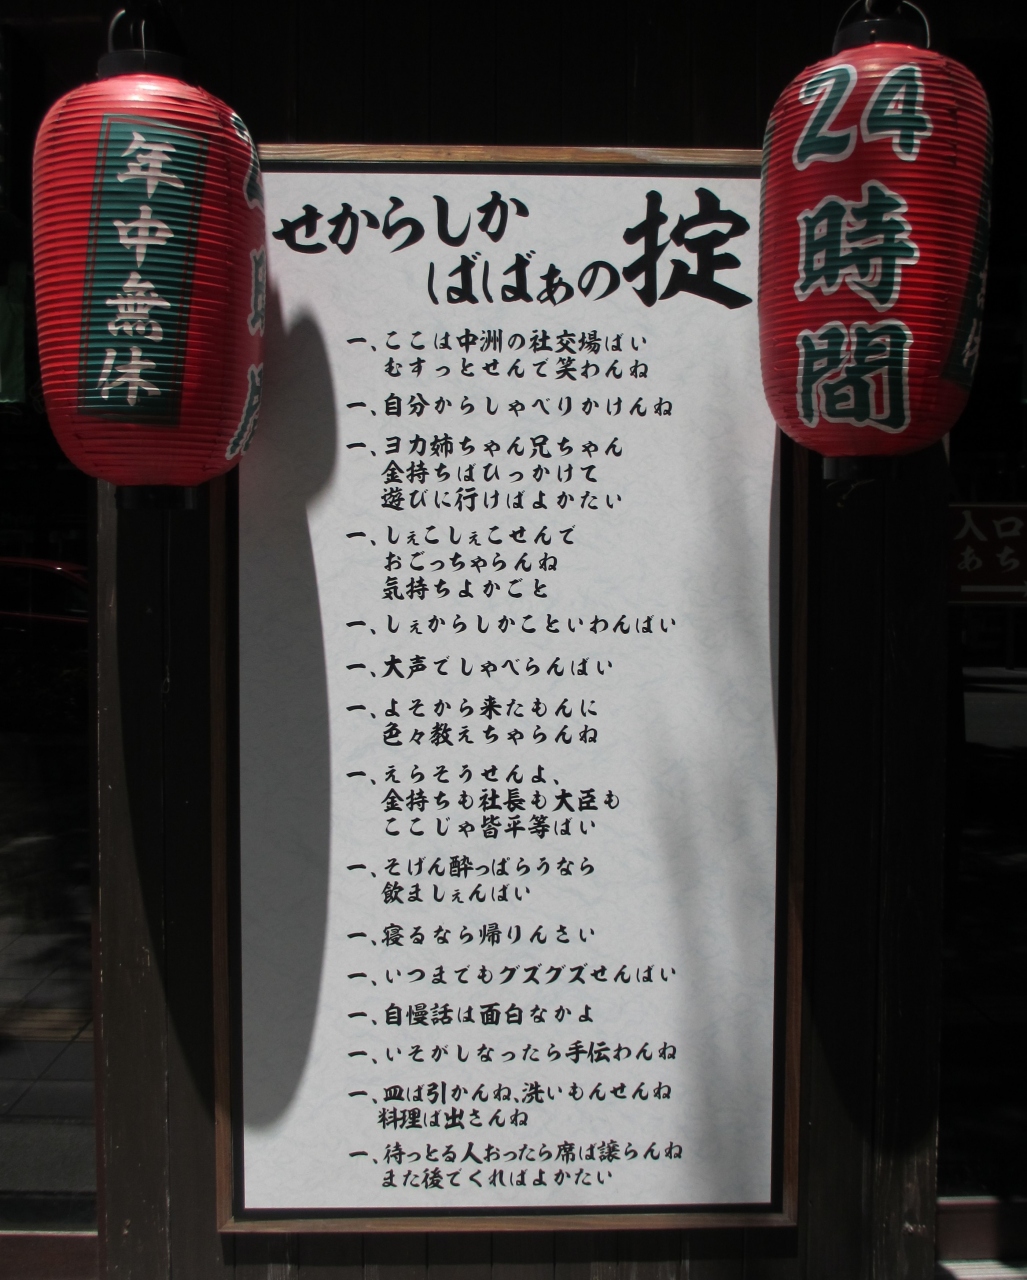 年中無休
24時間
せからしか
ばばぁの掟
一、ここは中洲の社交場ばい
むすっとせんで笑わんね
一、自分からしゃべりかけんね
一、ヨカ姉ちゃん兄ちゃん
金持ちばひっかけて
遊びに行けばよかたい
一、しぇこしぇこせんで
おごっちゃらんね
気持ちよかごと
一、しぇからしかこといわんばい
一、大声でしゃべらんばい
一、よそから来たもんに
色々教えちゃらんね
一、えらそうせんよ、
金持ちも社長も大臣も
ここじゃ皆平等ばい
一、そげん酔っぱらうなら
飲ましぇんばい
一、寝るなら帰りんさい
一、いつまでもグズグズせんばい
一、自慢話は面白なかよ
一、いそがしなったら手伝わんね
一、皿ば引かんね、洗いもんせんね
料理ば出さんね
一、待っとる人おったら席ば譲らんね
また後でくればよかたい
入口
あち